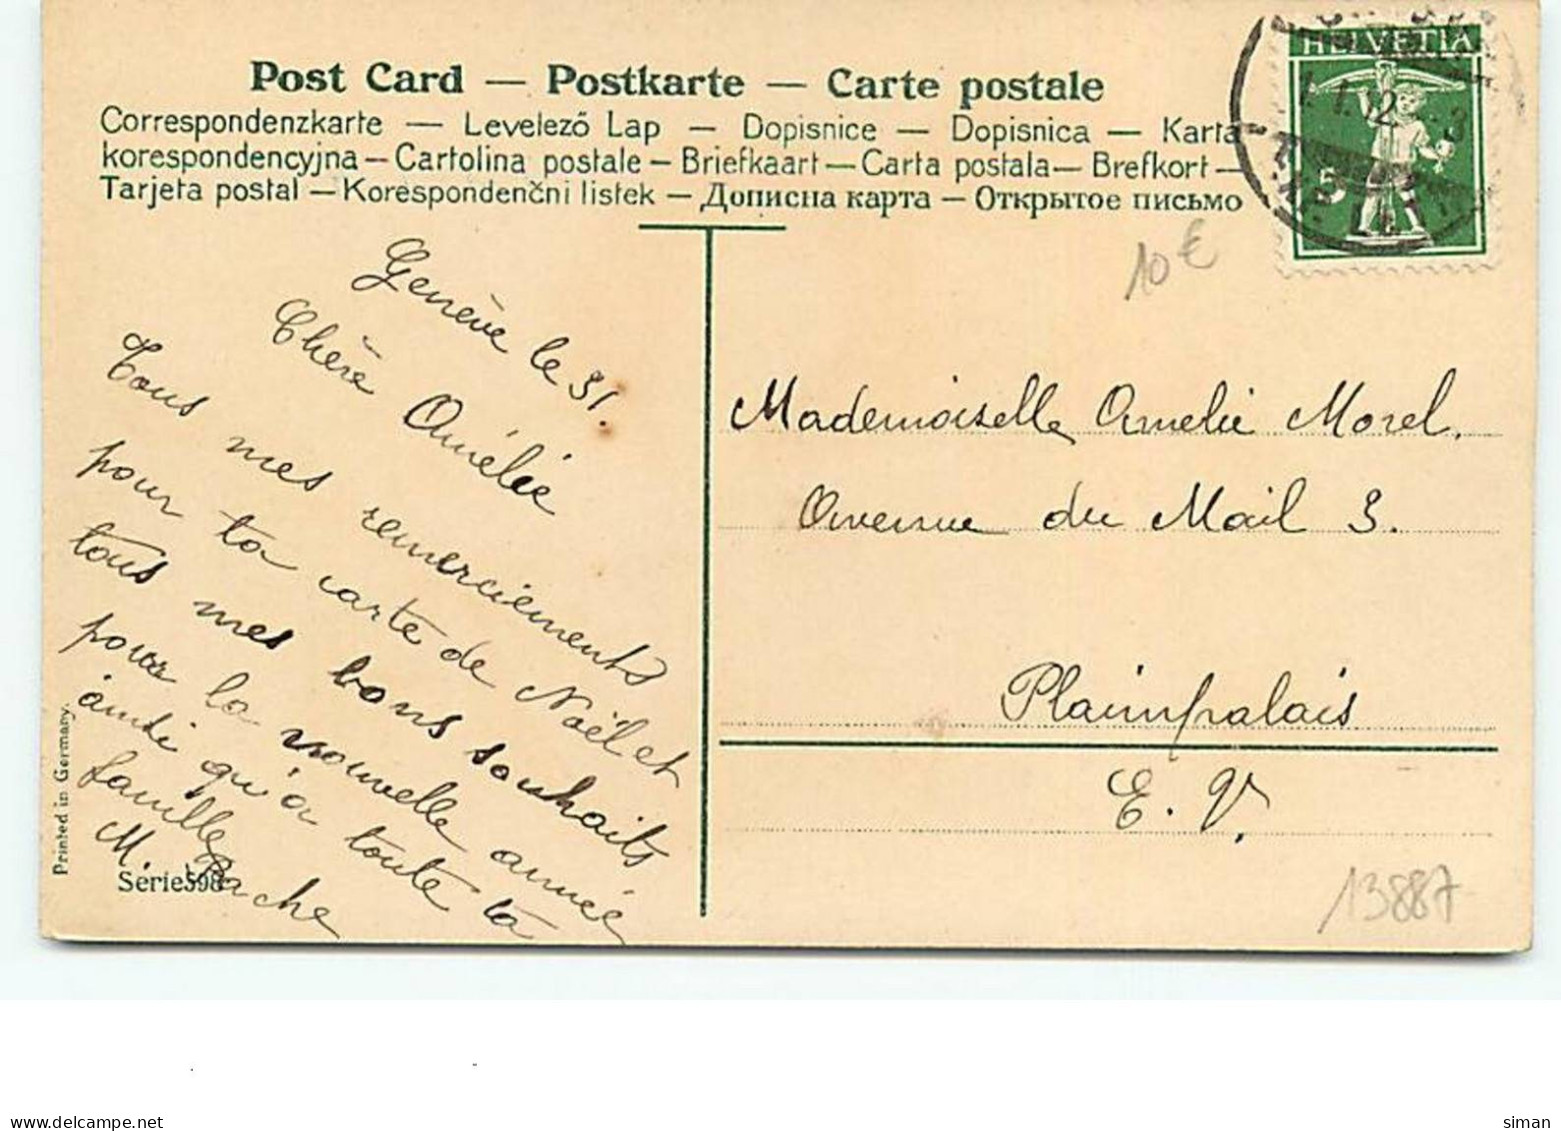 Post Card — Postkarte — Carte postale
Correspondenzkarte — Levelező Lap — Dopisnice — Dopisnica — Karta
korespondencyjna — Cartolina postale — Briefkaart — Carta postala — Brefkort —
Tarjeta postal — Korespondenčni listek — Дописна карта — Открытое письмо
HELVETIA
5
10 €
Genève le 31.
Chère Amélie
Tous mes remerciements
pour ta carte de Noël et
tous mes bons souhaits
pour la nouvelle année
ainsi qu'à toute ta
famille
M. Bache
Mademoiselle Amelie Morel.
Avenue du Mail 3.
Plainpalais
E. V.
Printed in Germany.
Serie 598
13887
www.delcampe.net
siman